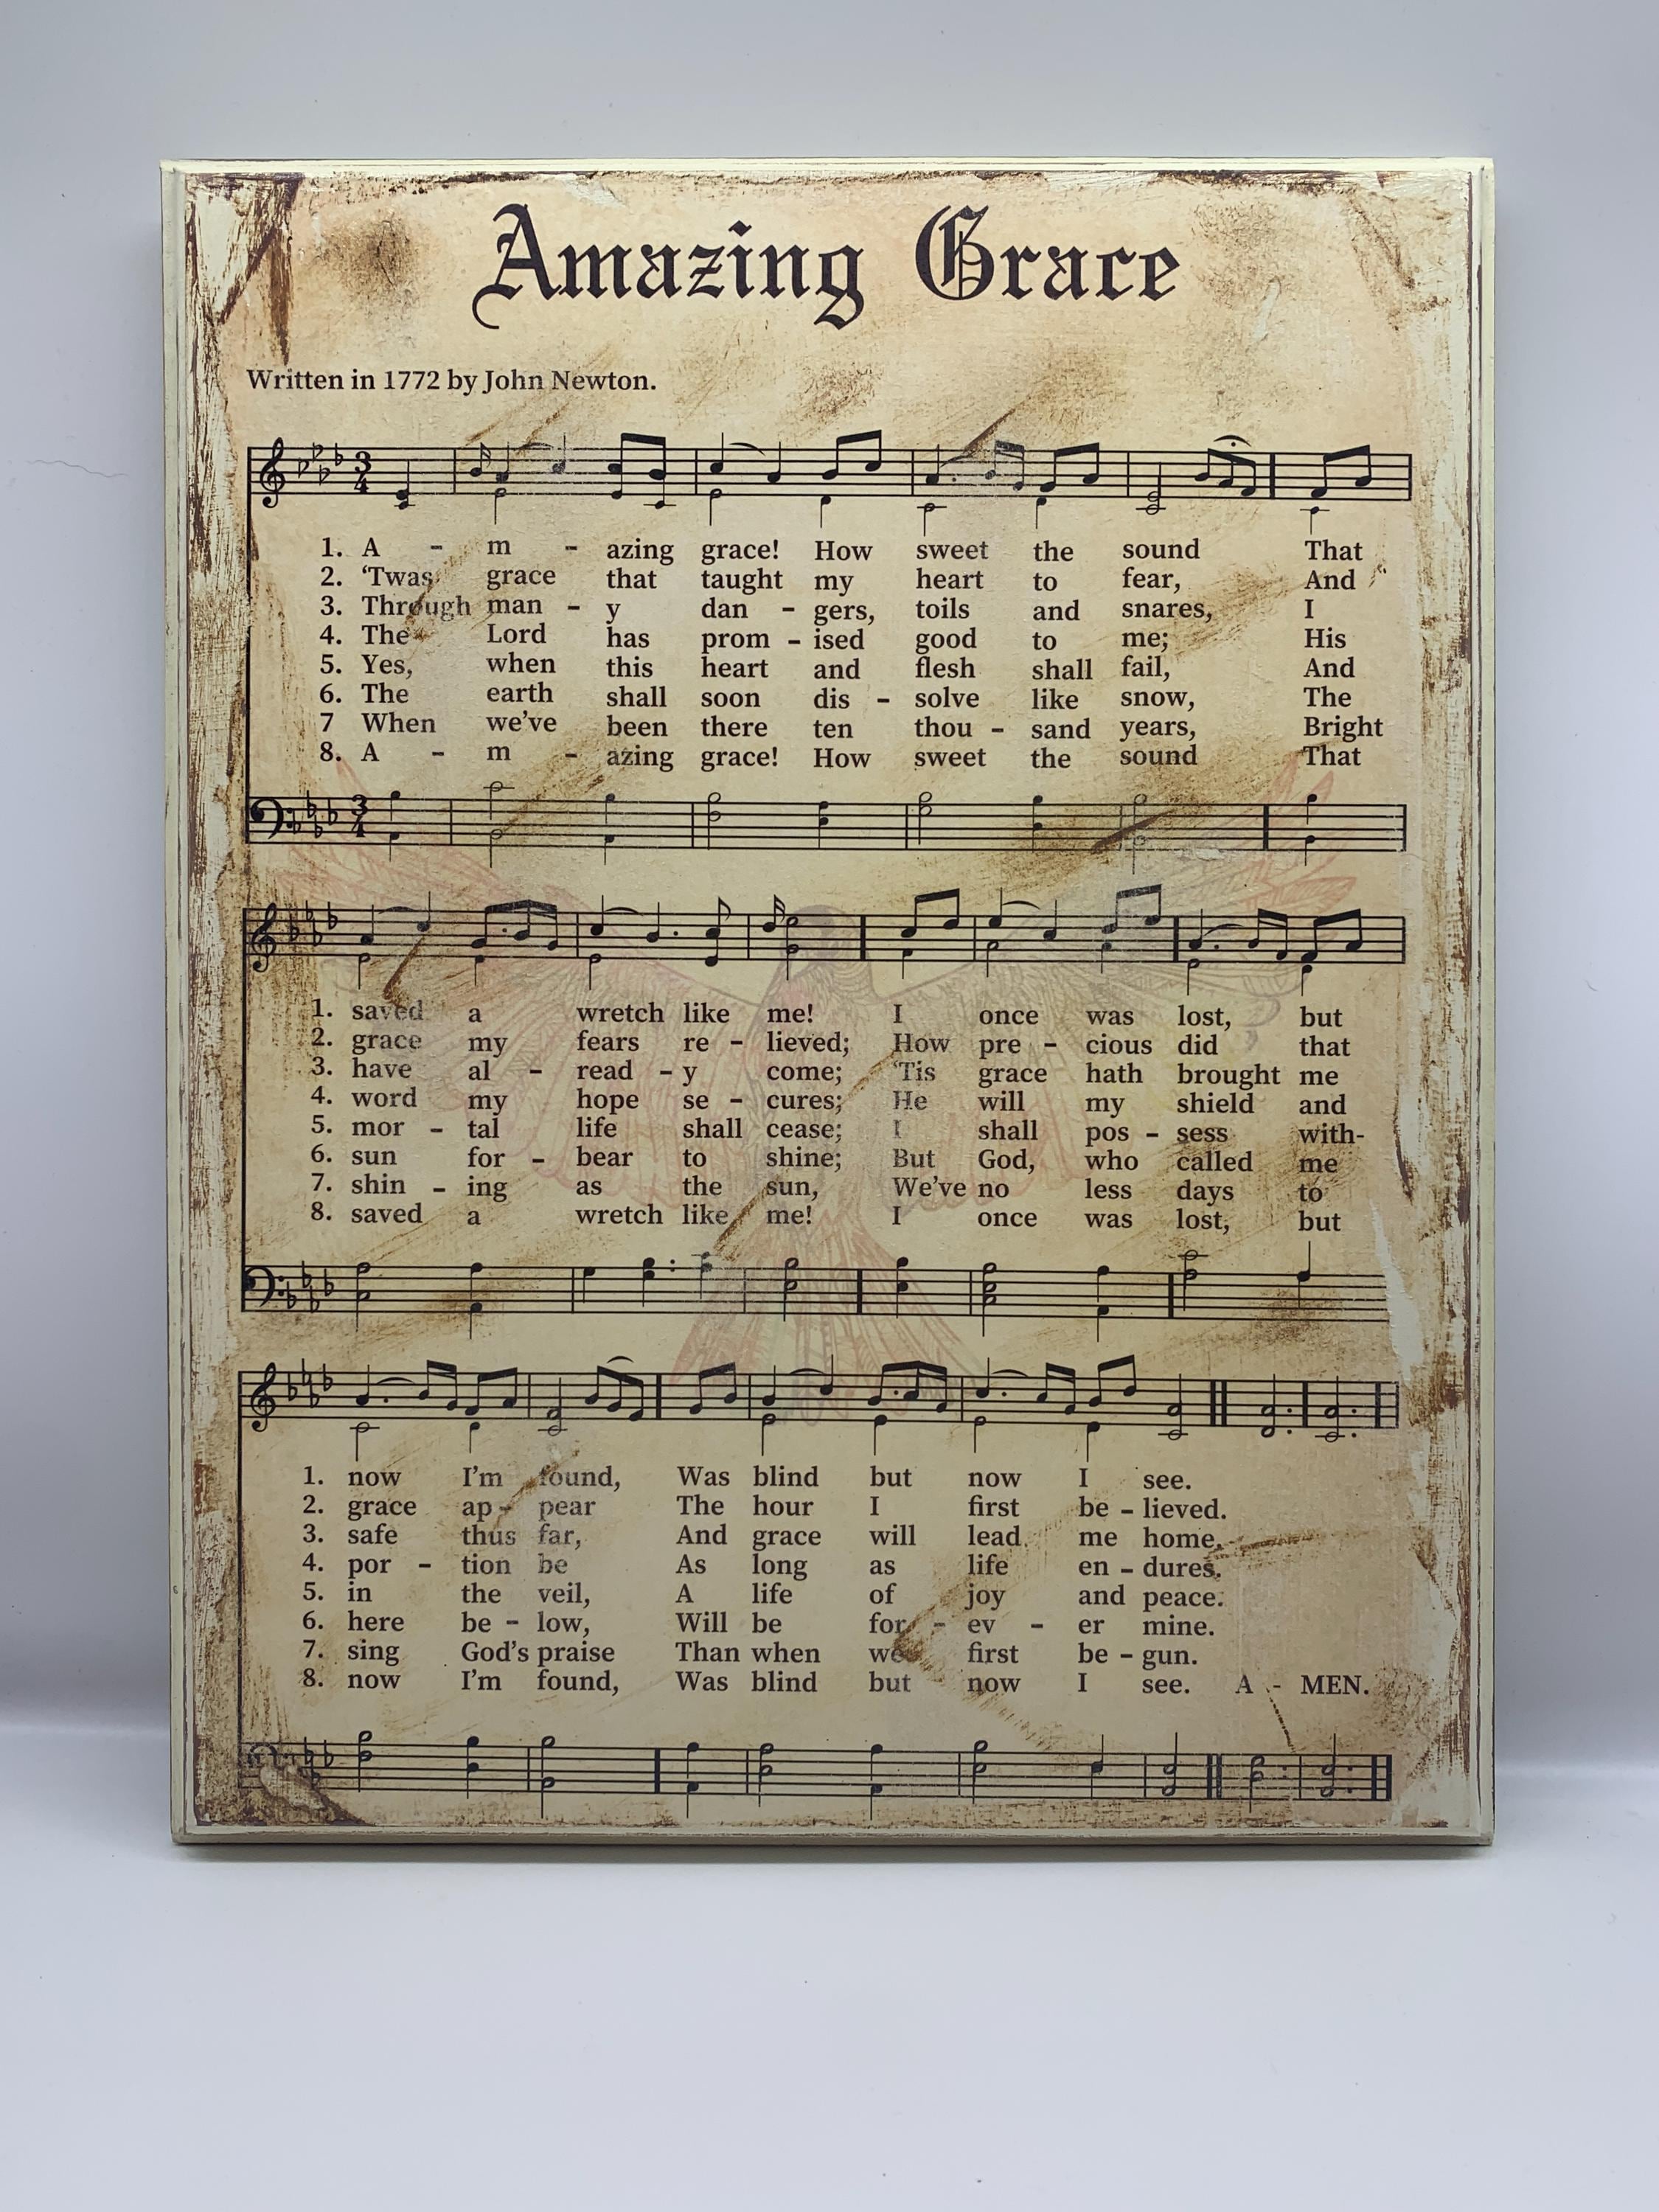 Amazing Grace
Written in 1772 by John Newton.
3
4
1. A - m - azing grace! How sweet the sound That
2. ‘Twas grace that taught my heart to fear, And
3. Through man - y dan - gers, toils and snares, I
4. The Lord has prom - ised good to me; His
5. Yes, when this heart and flesh shall fail, And
6. The earth shall soon dis - solve like snow, The
7 When we’ve been there ten thou - sand years, Bright
8. A - m - azing grace! How sweet the sound That
3
4
1. saved a wretch like me! I once was lost, but
2. grace my fears re - lieved; How pre - cious did that
3. have al - read - y come; ‘Tis grace hath brought me
4. word my hope se - cures; He will my shield and
5. mor - tal life shall cease; I shall pos - sess with-
6. sun for - bear to shine; But God, who called me
7. shin - ing as the sun, We’ve no less days to
8. saved a wretch like me! I once was lost, but
1. now I’m found, Was blind but now I see.
2. grace ap - pear The hour I first be - lieved.
3. safe thus far, And grace will lead me home.
4. por - tion be As long as life en - dures.
5. in the veil, A life of joy and peace.
6. here be - low, Will be for - ev - er mine.
7. sing God’s praise Than when we first be - gun.
8. now I’m found, Was blind but now I see. A - MEN.